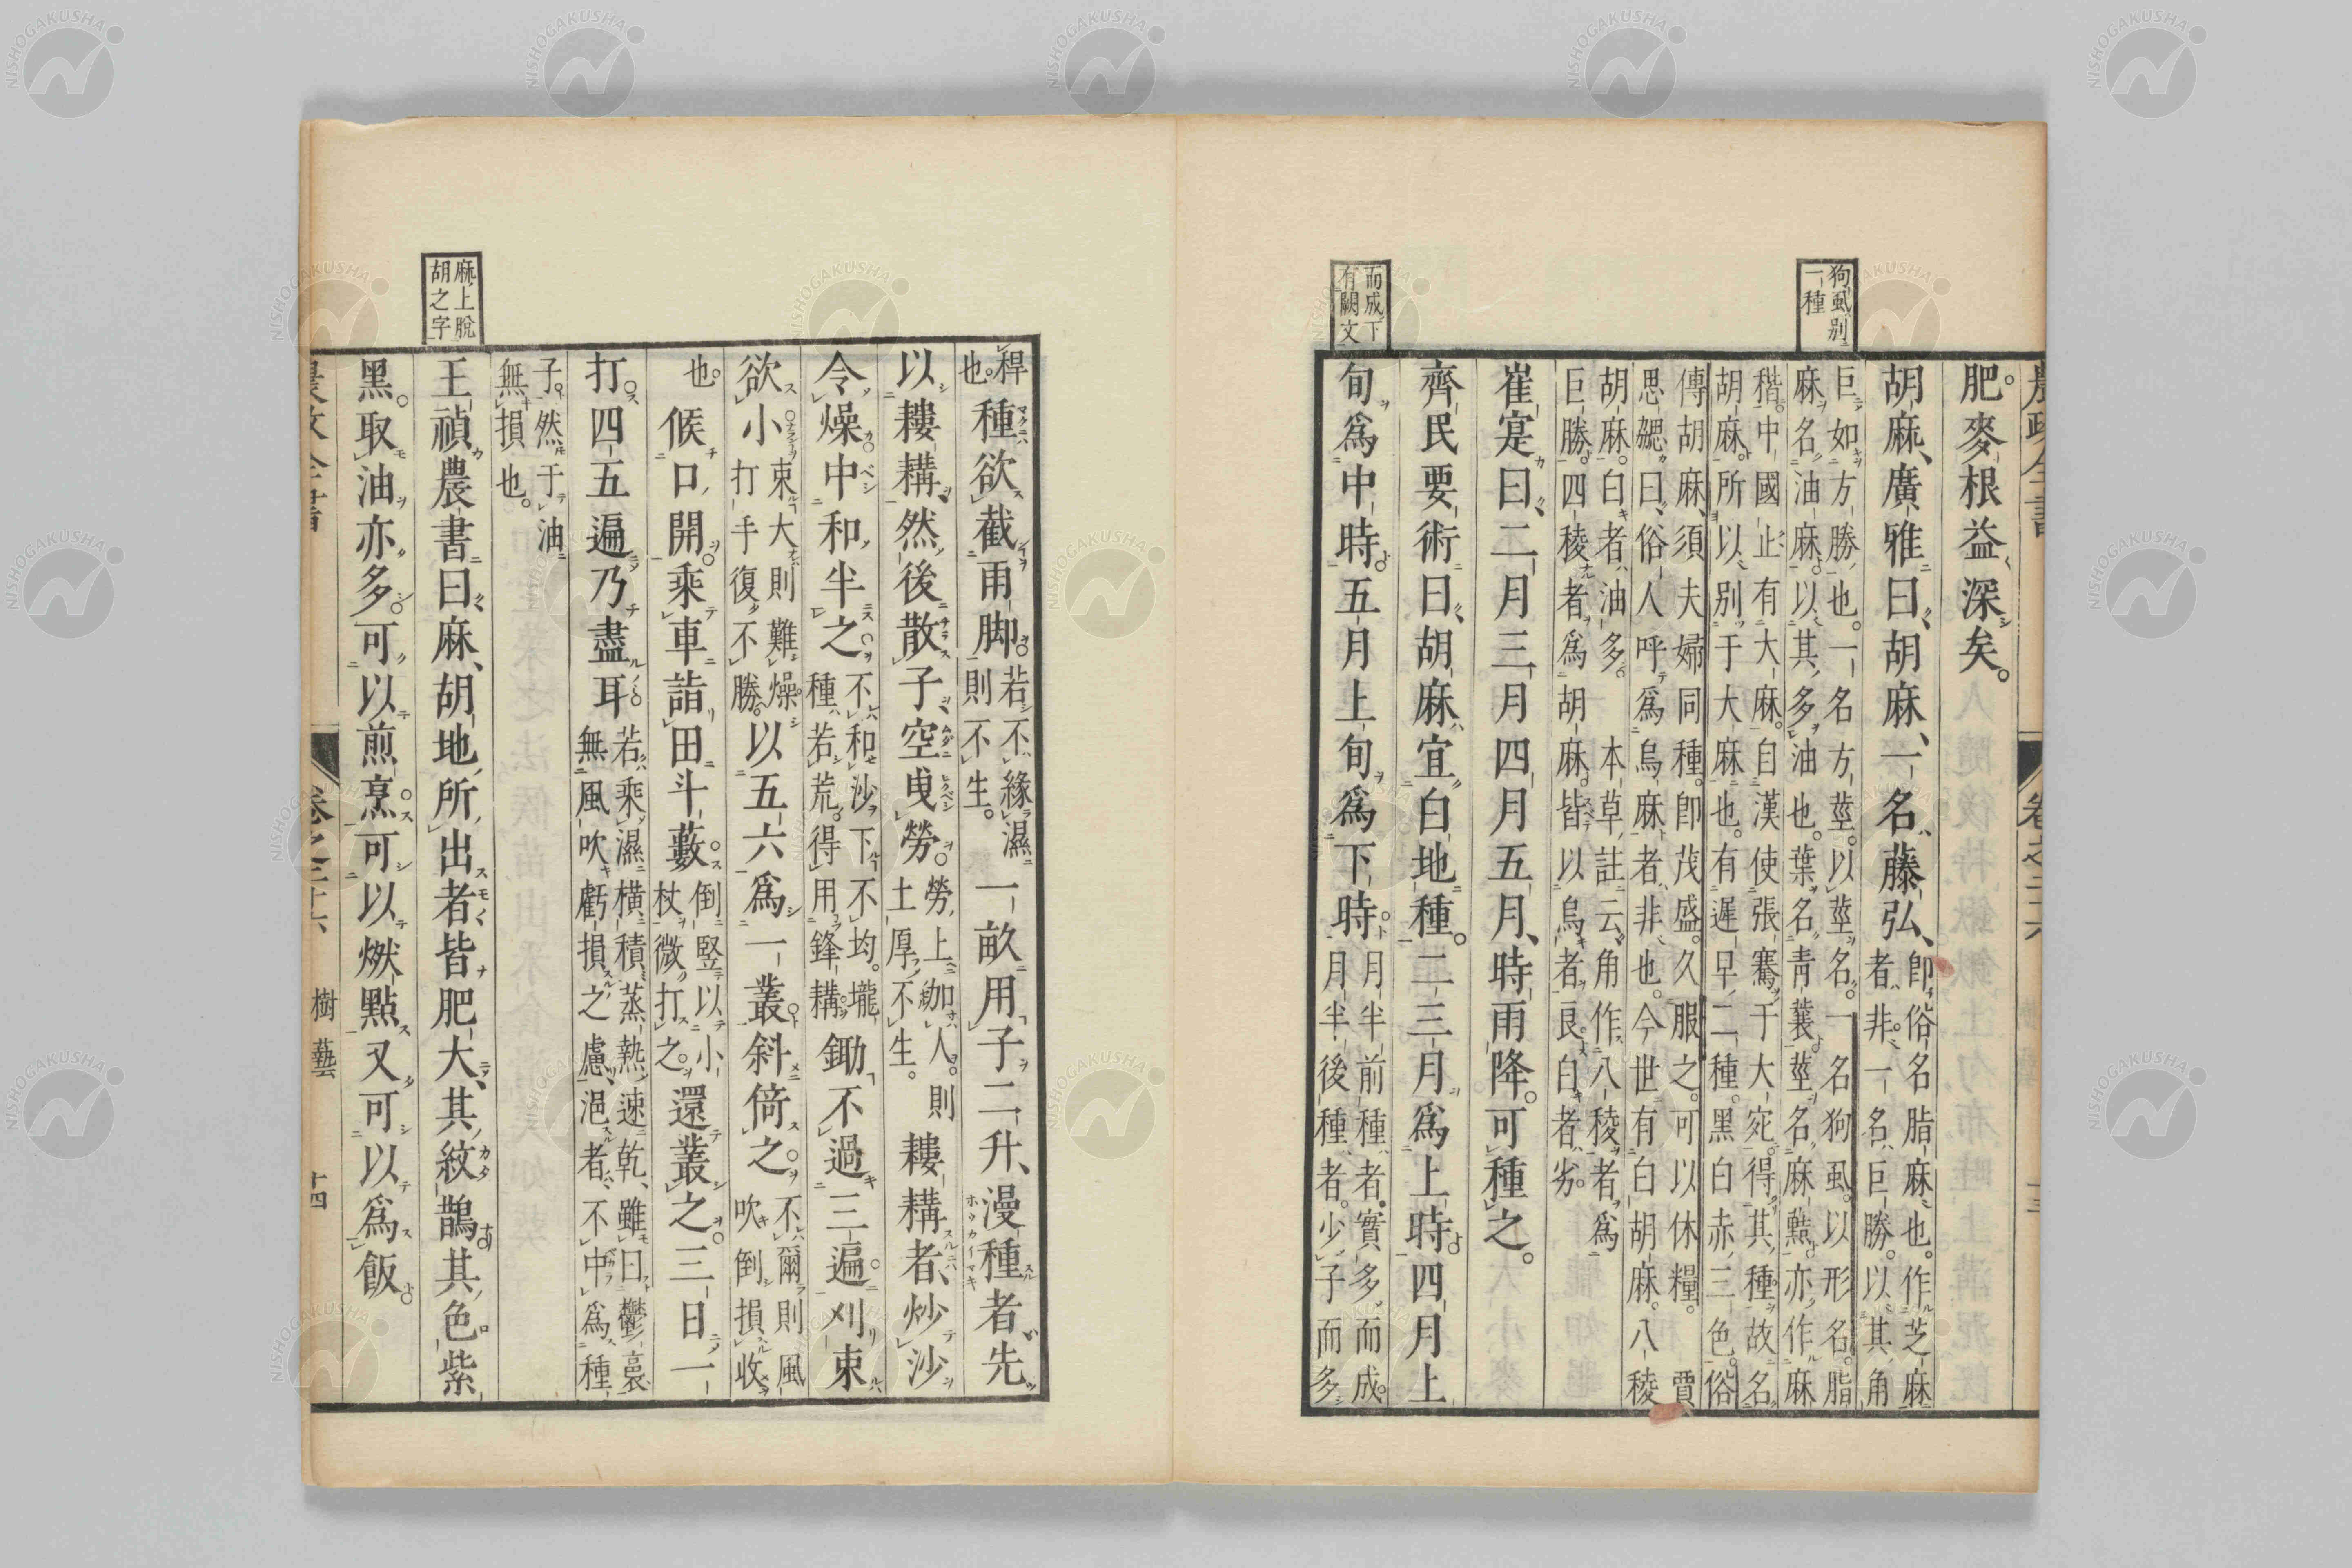 農政全書 卷之二十六 十三
狗虱別
一種
而成下
有闕文
肥麥根益深矣。
胡麻、廣雅曰、胡麻、一名、藤弘、卽俗名脂麻也。作芝麻
者非一名巨勝。以其角
巨如方勝也。一名方莖。以莖名。一名狗虱。以形名。脂
麻名油麻。以其多油也。葉名靑蘘莖名麻䕸亦作麻
稭。中國止有大麻。自漢使張騫于大宛。得其種故名
胡麻。所以別于大麻也。有遲早二種。黑白赤三色。俗
傳胡麻、須夫婦同種。卽茂盛。久服之。可以休糧。賈
思勰曰、俗人呼爲烏麻者、非也。今世有白胡麻。八稜
胡麻。白者油多。本草註云角作八稜者爲
巨勝。四稜者爲胡麻。皆以烏者良。白者劣。
崔寔曰、二月三月四月五月、時雨降。可種之。
齊民要術曰、胡麻宜白地種。二三月爲上時。四月上
旬爲中時。五月上旬爲下時。月半前種者。實多而成。
月半後種者。少子而多
稈
也。種欲截雨脚。若不緣濕
則不生。一畝用子二升、漫種者先
以耬耩。然後散子空曳勞。勞上加人。則
土厚不生。耬耩者、炒沙
令燥中和半之。不和沙下不均。壠
種若荒。得用鋒耩。鋤不過三遍。刈束
欲小束大則難燥
打手復不勝。以五六爲一叢斜倚之。不爾則風
吹倒損收
也。候口開。乘車詣田斗藪。倒竪以小
杖微打之。還叢之。三日一
打。四五遍乃盡耳。若乘濕橫積蒸熱速乾、雖曰鬱裛
無風吹虧損之慮、浥者、不中爲種
子。然于油
無損也。
麻上脫
胡之字
王禎農書曰麻、胡地所出者皆肥大、其紋鵲其色紫
黑。取油亦多。可以煎烹。可以燃點又可以爲飯。
農政全書 卷之二十六 樹藝 十四
NISHOGAKUSHA